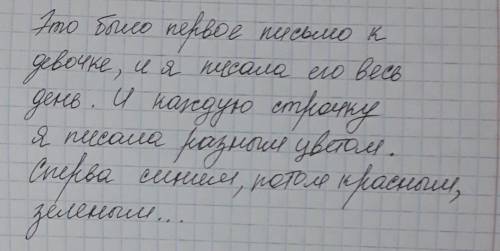 Это было первое письмо к
девочке, и я писала его весь
день. И каждую строчку
я писала разным цветом.
Сперва синим, потом красным,
зеленым...